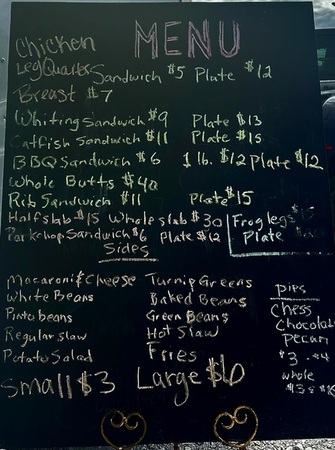 MENU
Chicken
Leg Quarter Sandwich $5 Plate $12
Breast $7
Whiting Sandwich $9 Plate $13
Catfish Sandwich $11 Plate $15
BBQ Sandwich $6 1 lb. $12 Plate $12
Whole Butts $40
Rib Sandwich $11 Plate $15
Half slab $15 Whole slab $30
Frog legs $15
Plate
Porkchop Sandwich $6 Plate $12
Sides
Macaroni & Cheese Turnip Greens
White Beans Baked Beans
Pinto beans Green Beans
Regular slaw Hot Slaw
Potato Salad Fries
Small $3 Large $6
pies
Chess
Chocolate
pecan
$3 - $4
whole